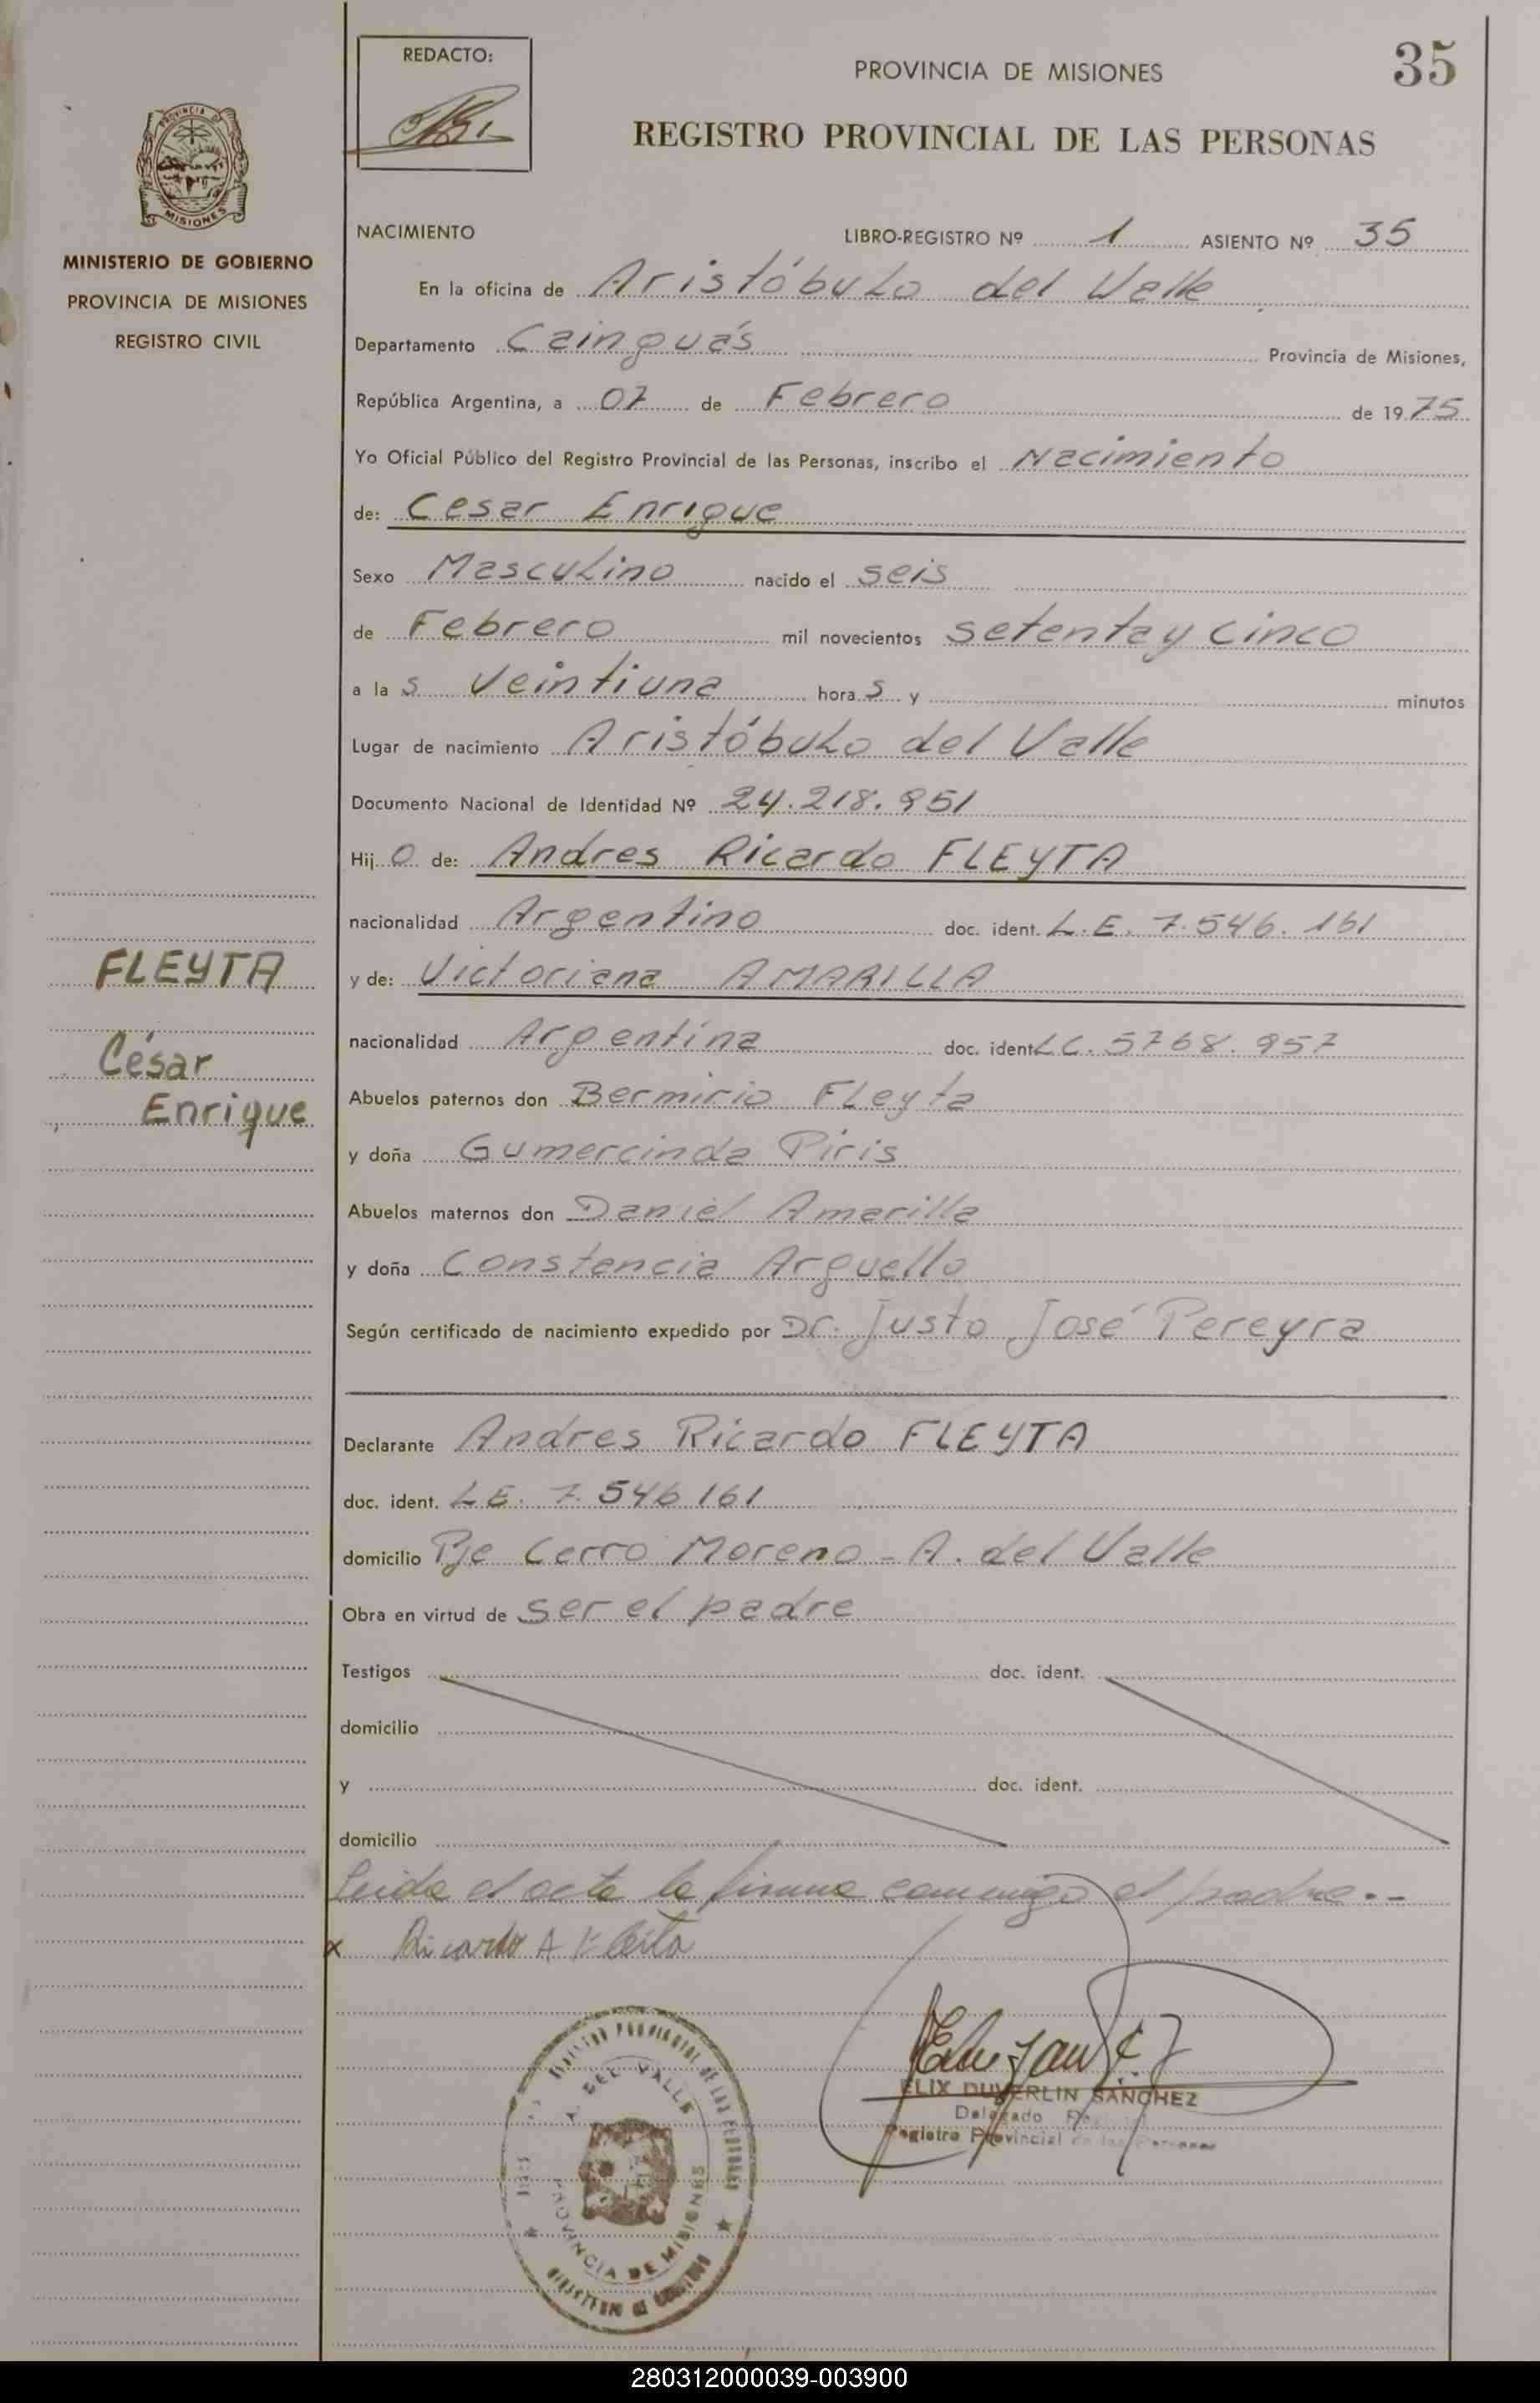 REDACTO:
PROVINCIA DE MISIONES
35
REGISTRO PROVINCIAL DE LAS PERSONAS
PROVINCIA DE
MISIONES
MINISTERIO DE GOBIERNO
PROVINCIA DE MISIONES
REGISTRO CIVIL
NACIMIENTO LIBRO-REGISTRO Nº 1 ASIENTO Nº 35
En la oficina de Aristóbulo del Valle
Departamento Cainguás Provincia de Misiones,
República Argentina, a 07 de Febrero de 1975
Yo Oficial Público del Registro Provincial de las Personas, inscribo el Nacimiento
de: Cesar Enrique
Sexo Masculino nacido el seis
de Febrero mil novecientos setenta y cinco
a la s veintiuna hora s y minutos
Lugar de nacimiento Aristóbulo del Valle
Documento Nacional de Identidad Nº 24.218.951
Hij o de: Andres Ricardo FLEYTA
nacionalidad Argentino doc. ident. L.E. 7.546.161
y de: Victoriana AMARILLA
nacionalidad Argentina doc. ident LC. 5768.957
Abuelos paternos don Bermirio Fleyta
y doña Gumercinda Piris
Abuelos maternos don Daniel Amarilla
y doña Constancia Arguello
Según certificado de nacimiento expedido por Dr. Justo José Pereyra
Declarante Andres Ricardo FLEYTA
doc. ident. L.E. 7.546161
domicilio Pje Cerro Moreno - A. del Valle
Obra en virtud de ser el padre
Testigos doc. ident.
domicilio
y doc. ident.
domicilio
Leida el acta la firma conmigo el padre.-
x Ricardo A Fleita
FLEYTA
César
Enrique
A. DEL VALLE
PROVINCIA DE MISIONES
ELIX DUVERLIN SANCHEZ
Delegado
Registro Provincial de las Personas
280312000039-003900